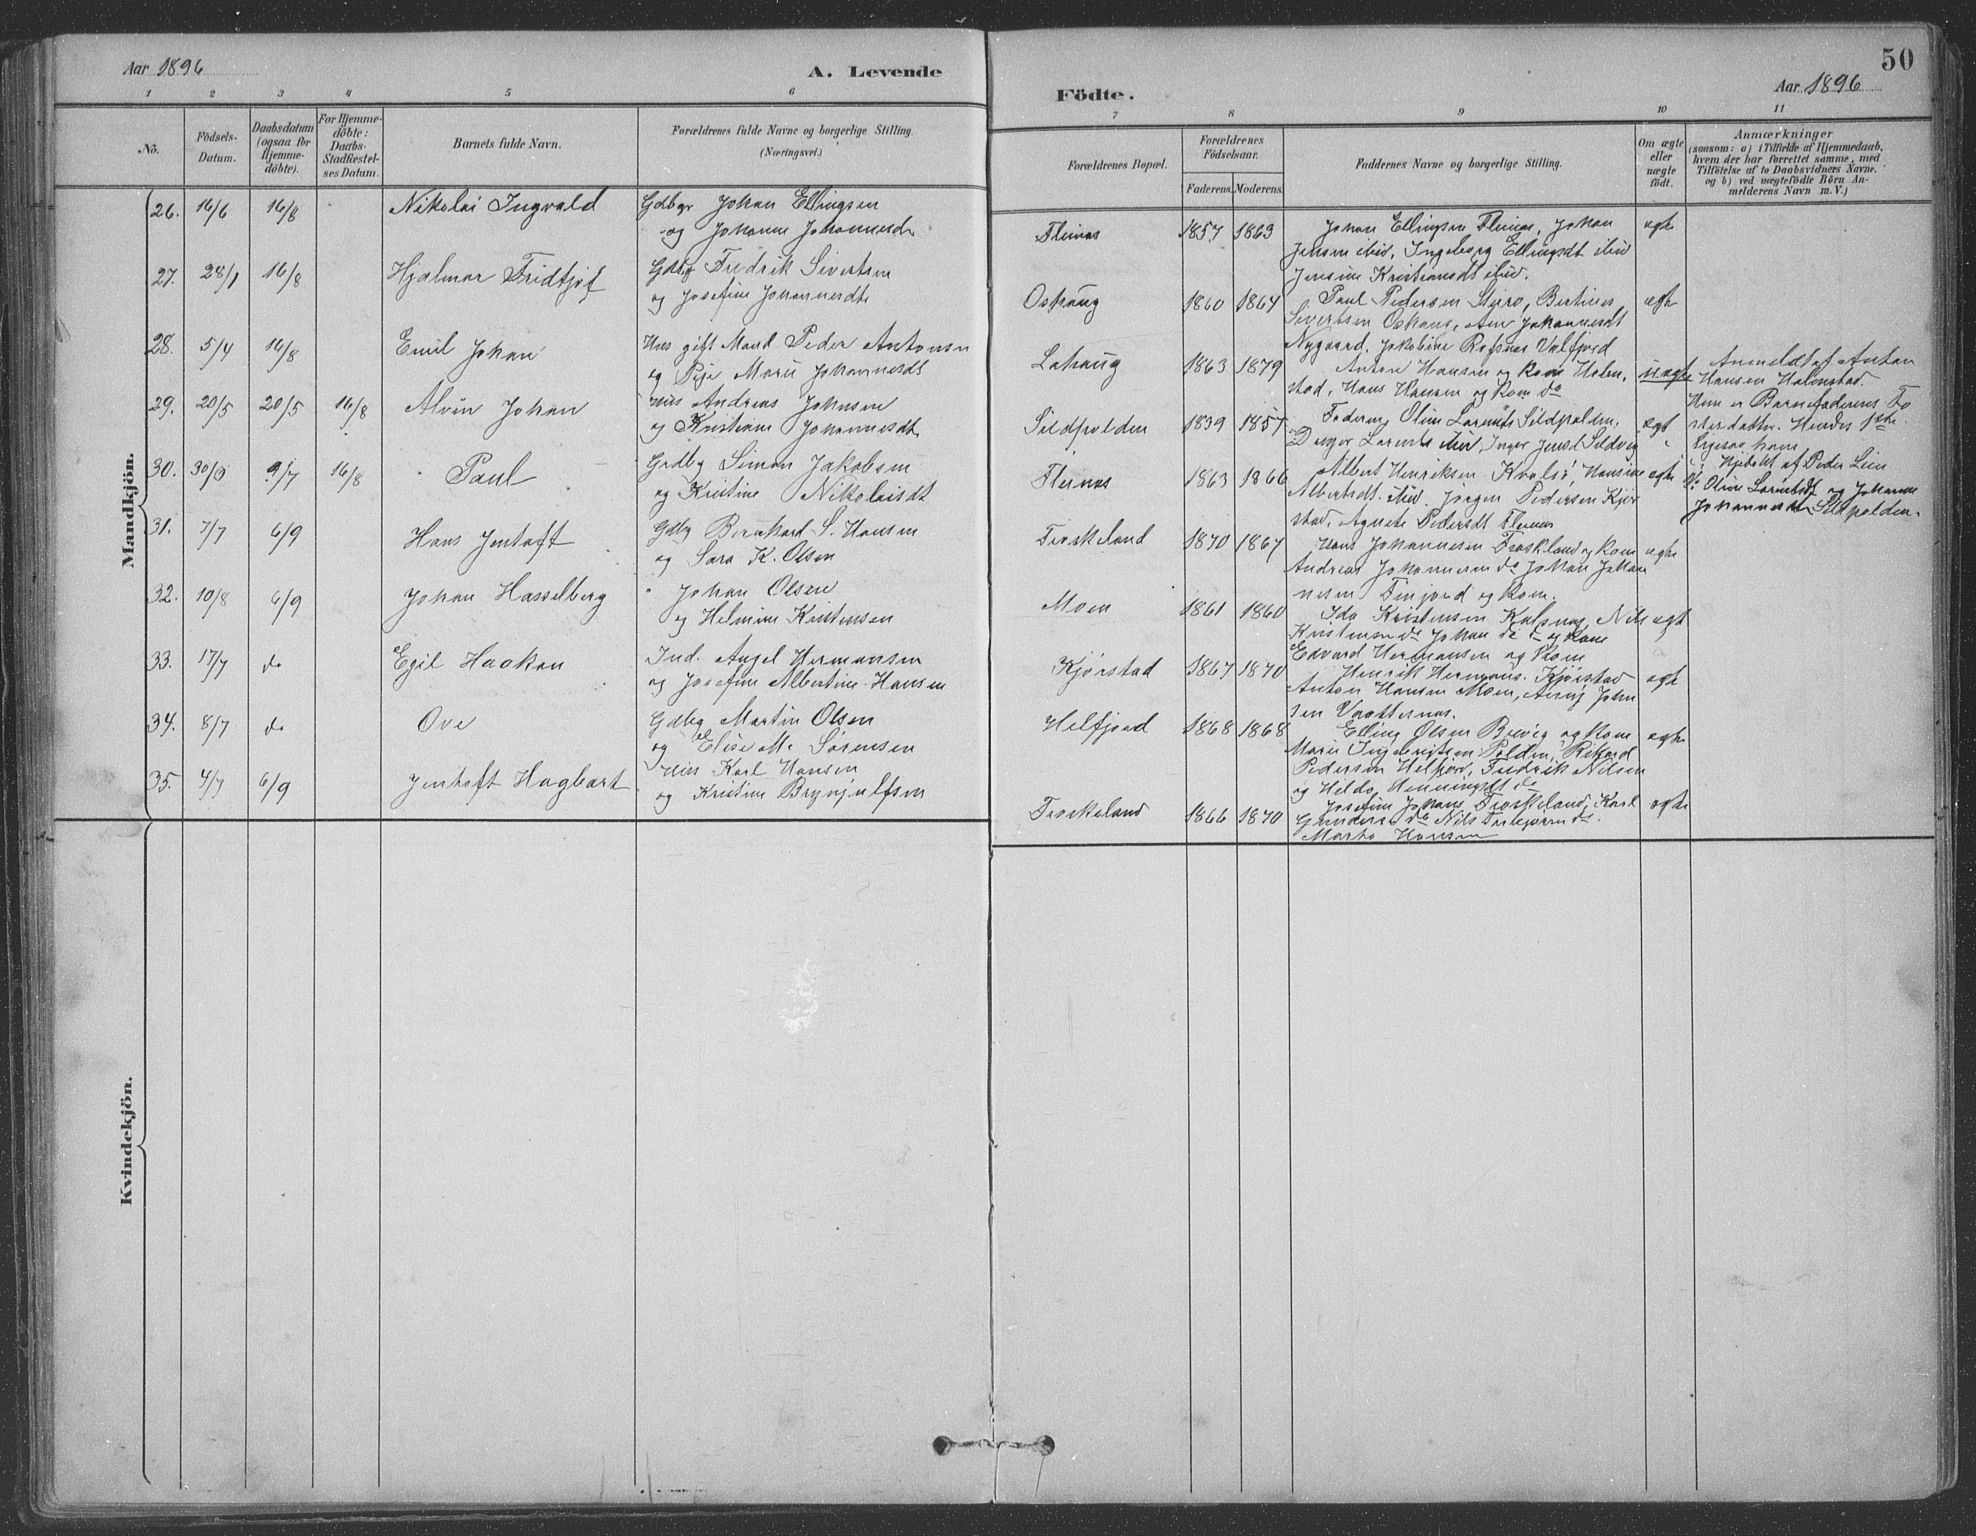 Aar 1896
A. Levende
1 2 3 4 5 6
No.
Födsels-
Datum.
Daabsdatum
(ogsaa for
Hjemme-
döbte).
For Hjemme-
döbte:
Daabs-
Stadfæstel-
ses Datum.
Barnets fulde Navn.
Forældrenes fulde Navne og borgerlige Stilling.
(Næringsvei.)
Mandkjön.
26. 16/6 16/8 Nikolai Ingvald Gdbgr Johan Ellingsen
og Johanne Johannesdt
27. 28/1 16/8 Hjalmar Fridtjof Gdbg Fredrik Sivertsen
og Josefine Johannesdtr
28. 5/4 16/8 Emil Johan Hus gift Mand Peder Antonsen
og Marie Johannesdt
29. 20/5 20/5 16/8 Alvin Johan Hus Andreas Johnsen
og Kristiane Johannesdtr
30. 9/7 16/8 Paul Gdbg Simon Jakobsen
og Kristine Nikolaisdt
31. 7/7 6/9 Hans Jentoft Gdbg Bernhard S. Hansen
og Sara K. Olsen
32. 10/8 6/9 Johan Hasselberg " Johan Olsen
og Helmine Kristensen
33. 17/7 do Egil Haakon Ind. Angel Hermansen
og Josefine Albertine Hansen
34. 8/7 do Ove Gdbg Martin Olsen
og Elise M. Sörensen
35. 4/7 6/9 Jentoft Hagbart Hus Karl Hansen
og Kristine Brynjulfsen
Kvindekjön.
50
Aar 1896
Födte.
7 8 9 10 11
Forældrenes Bopæl.
Forældrenes
Födselsaar.
Faderens. Moderens.
Faddernes Navne og borgerlige Stilling.
Om ægte
eller
uægte
födt.
Anmærkninger
(saasom: a) i Tilfælde af Hjemmedaab,
hvem der har forrettet samme, med
Tilföielse af to Daabsvidners Navne.
og b) ved uægtefödte Börn An-
melderens Navn m.V.)
Flesnes 1857 1863 Johan Ellingsen Flesnes, Johan ægte
Jensen ibid, Ingeborg Ellingsdt ibid
Jensine Kristiansdt ibid.
Oshaug 1860 1864 Paul Pedersen Steiro, Bertines ægte
Sivertsen Oshaug, Ane Johannesdt
Nygaard, Jakobine Refsnes Valfjord
Lahaug 1863 1879 Anton Hansen og Kone Holm- uægte Anmeldt af Anton
stad, Hans Hansen og Kone do Hansen Holmstad.
Hun er Barnefaderens Fo
sterdatter. Hendes 1ste.
Sildpolden 1839 1857 Faderen, Oline Larntsdt Sildpolden, ægt
Ligesaa hans
Flesnes 1863 1866 Albert Henriksen Kvalsö, Hansine ægte Hjdøbt af Peder Lein
Albertsdt ibid. Jörgen Pedersen Kjør Oline Larntsdt og Johanne
stad, Agnete Pedersdt Flesnes Johannesdt Sildpolden.
Froskeland 1870 1867 Hans Johannesen Froskeland og Kone ægte
Andreas Johannesen do Johan Johan
nesen Finjord og Kone.
Moen 1861 1860 Ida Kristensen Kalsnes, Nils ægt
Kristensen do Johan do og Kone
Kjörstad 1867 1870 Edvard Hermansen og Kone ægt
Henrik Hermans. Kjörstad
Anton Hansen Moen, John
sen Vaatternes.
Helfjord 1868 1868 Elling Olsen Brevig og Kone ægte
Marie Ingebrigtsen Polden, Rikard
Pedersen Helfjor, Fredrik Nilsen
og Hilda Henningsdt do
Froskeland 1866 1870 Josefine Johans. Froskeland, Karl ægte
Gundersen do Nils do.
Marta Hansen